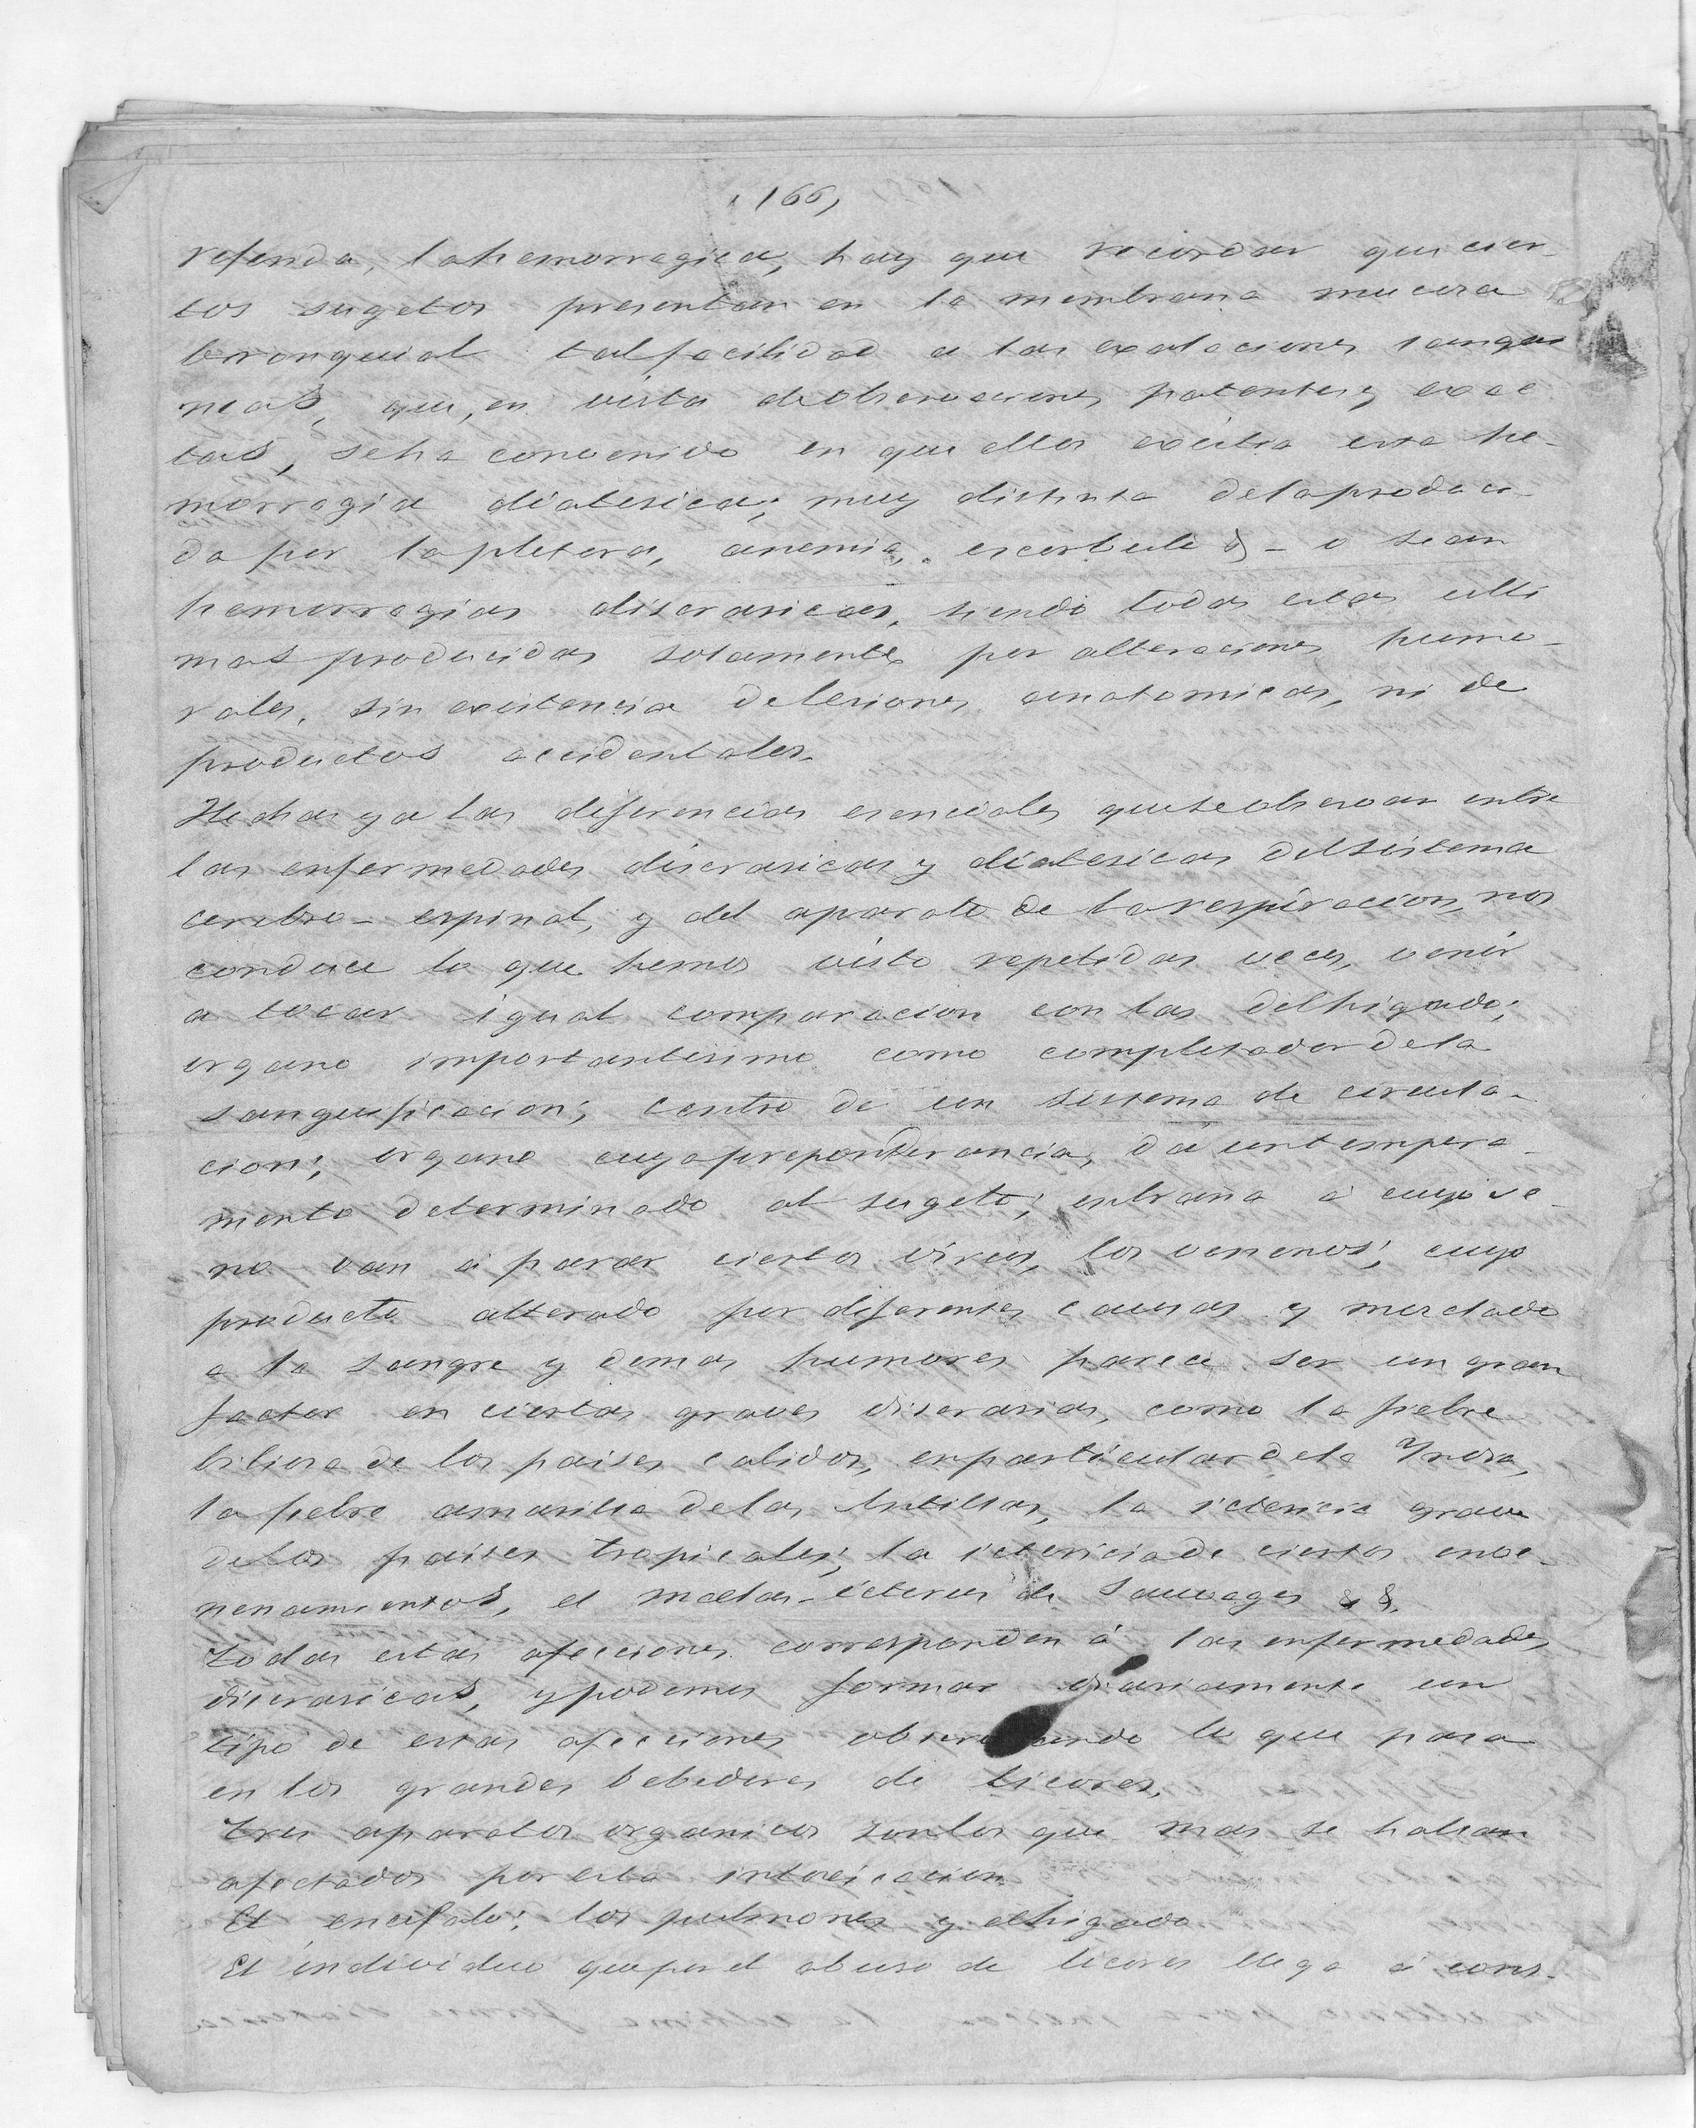 166,
referida, la hemorragica, hay que recordar que cier-
tos sugetos presentan en la membrana mucosa
bronquial tal facilidad a las exalaciones sangui
neas, que, en vista de observaciones patentes y exac
tas, se ha convenido en que ellos exista esta he-
morragia diatesica, muy distinta de la produci-
da por la pletora, anemia, escorbuto & - o sean
hemorragias discrasicas, siendo todas estas ulti
mas producidas solamente por alteraciones humo-
rales, sin existencia de lesiones anatomicas, ni de
productos accidentales.
Hechas ya las diferencias esenciales que se observan entre
las enfermedades discrasicas y diatesicas del sistema
cerebro-espinal, y del aparato de la respiracion, nos
conduce lo que hemos visto repetidas veces, venir
a tocar igual comparacion con las del higado;
organo importantisimo como completador de la
sanguificacion; centro de un sistema de circula-
cion; organo cuya preponderancia, dá un tempera-
mento determinado al sugeto; entraña á cuyo se-
no van á parar ciertos virus, los venenos; cuyo
producto alterado por diferentes causas y mezclado
a la sangre y demas humores parece ser un gran
factor en ciertas graves discrasias, como la fiebre
biliosa de los paises calidos, en particular de la Yndia,
la fiebre amarilla de las Antillas, la ictericia grave
de los paises tropicales; la ictericia de ciertos enve-
nenamientos, el melas-icterus de Sauvages & &.
Todas estas afecciones corresponden á las enfermedades
discrasicas, y podemos formar diariamente un
tipo de estas afecciones observando lo que pasa
en los grandes bebedores de licores.
Tres aparatos organicos son los que mas se hallan
afectados por esta intoxicacion.
El encefalo; los pulmones y el higado
El individuo que por el abuso de licores llega á cons-